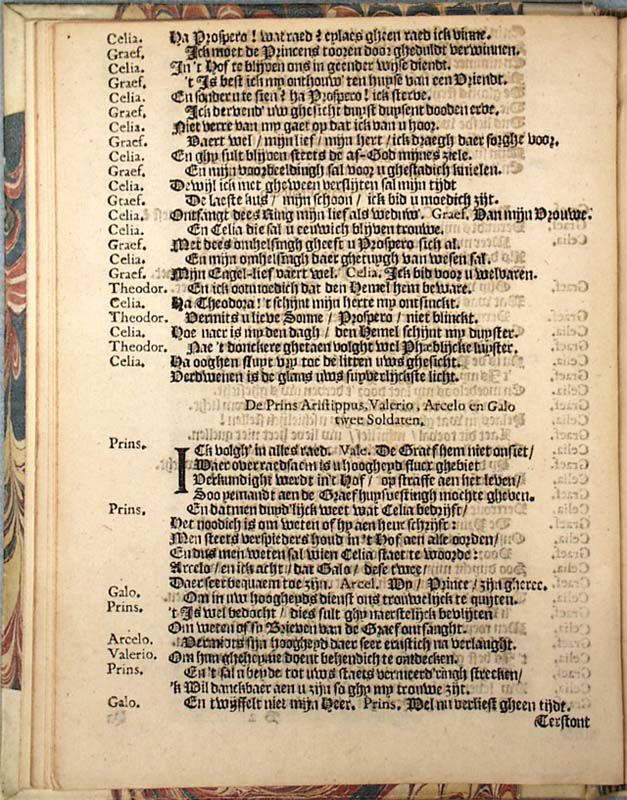 Celia. Ha Prospero! wat raed? eylaes gheen raed ick vinne.
Graef. Ick moet de Princens tooren door gheduldt verwinnen.
Celia. In 't Hof te blijven ons in geender wijse diendt.
Graef. 't Is best ick my onthouw' ten huyse van een Vriendt.
Celia. En sonder u te sien? ha Prospero! ick sterve.
Graef. Ick dervend' uw ghesicht duyst duysent dooden erve.
Celia. Niet verre van my gaet op dat ick van u hoor.
Graef. Vaert wel / mijn lief / mijn hert / ick draegh daer sorghe voor.
Celia. En ghy sult blijven steets de af-God mijnes ziele.
Graef. En mijn voorbeeldingh sal voor u ghestadich knielen.
Celia. Dewijl ick met gheween verslijten sal mijn tijdt
Graef. De laeste kus / mijn schoon / ick bid u moedich zijt.
Celia. Ontfangt dees Ring mijn lief als weduw'. Graef. Van mijn Vrouwe.
Celia. En Celia die sal u eeuwich blijven trouwe.
Graef. Met dees omhelsingh gheeft u Prospero sich al.
Celia. En mijn omhelsingh daer ghetuygh van wesen sal.
Graef. Mijn Engel-lief vaert wel. Celia. Ick bid voor u welvaren.
Theodor. En ick ootmoedich dat den Hemel hem beware.
Celia. Ha Theodora! 't schijnt mijn herte my ontsinckt.
Theodor. Vermits u lieve Sonne / Prospero / niet blinckt.
Celia. Hoe naer is my den dagh / den Hemel schijnt my duyster.
Theodor. Nae 't donckere ghetaen volght wel Phæblijcke luyster.
Celia. Ha ooghen sluyt vry toe de litten uws ghesicht.
Verdwenen is de glans uws suyverlijckste licht.
De Prins Aristippus, Valerio, Arcelo en Galo
twee Soldaten.
Prins. ICk volgh' in alles raed. Vale. De Graef hem niet ontsiet /
Waer over raedsaem is u hoogheyd flucx ghebiet
Verkundight werdt in 't Hof / op straffe aen het leven /
Soo yemandt aen de Graef huysvestingh mochte gheven.
Prins. En datmen duyd'lijck weet wat Celia bedrijft /
Het noodich is om weten of hy aen heur schrijft:
Men steets verspieders houd in 't Hof aen alle oorden /
En dus men weten sal wien Celia staet te woorde:
Arcelo / en ick acht / dat Galo / dese twee /
Daer seer bequaem toe zijn. Arcel. Wy / Prince / zijn gheree.
Galo. Om in uw hoogheyds dienst ons trouwelijck te quijten.
Prins. 't Is wel bedocht / dies sult ghy naerstelijck bevlijten
Om weten of sy Brieven van de Graef ontfanght.
Arcelo. Vermits sijn hoogheyd daer seer ernstich na verlanght.
Valerio. Om hun gheheyme doent behendich te ontdecken.
Prins. En 't sal u beyde tot uws staets vermeerd'ringh strecken /
'k Wil danckbaer aen u zijn so ghy my trouwe zijt.
Galo. En twijffelt niet mijn Heer. Prins. Wel nu verliest gheen tijdt.
Terstont